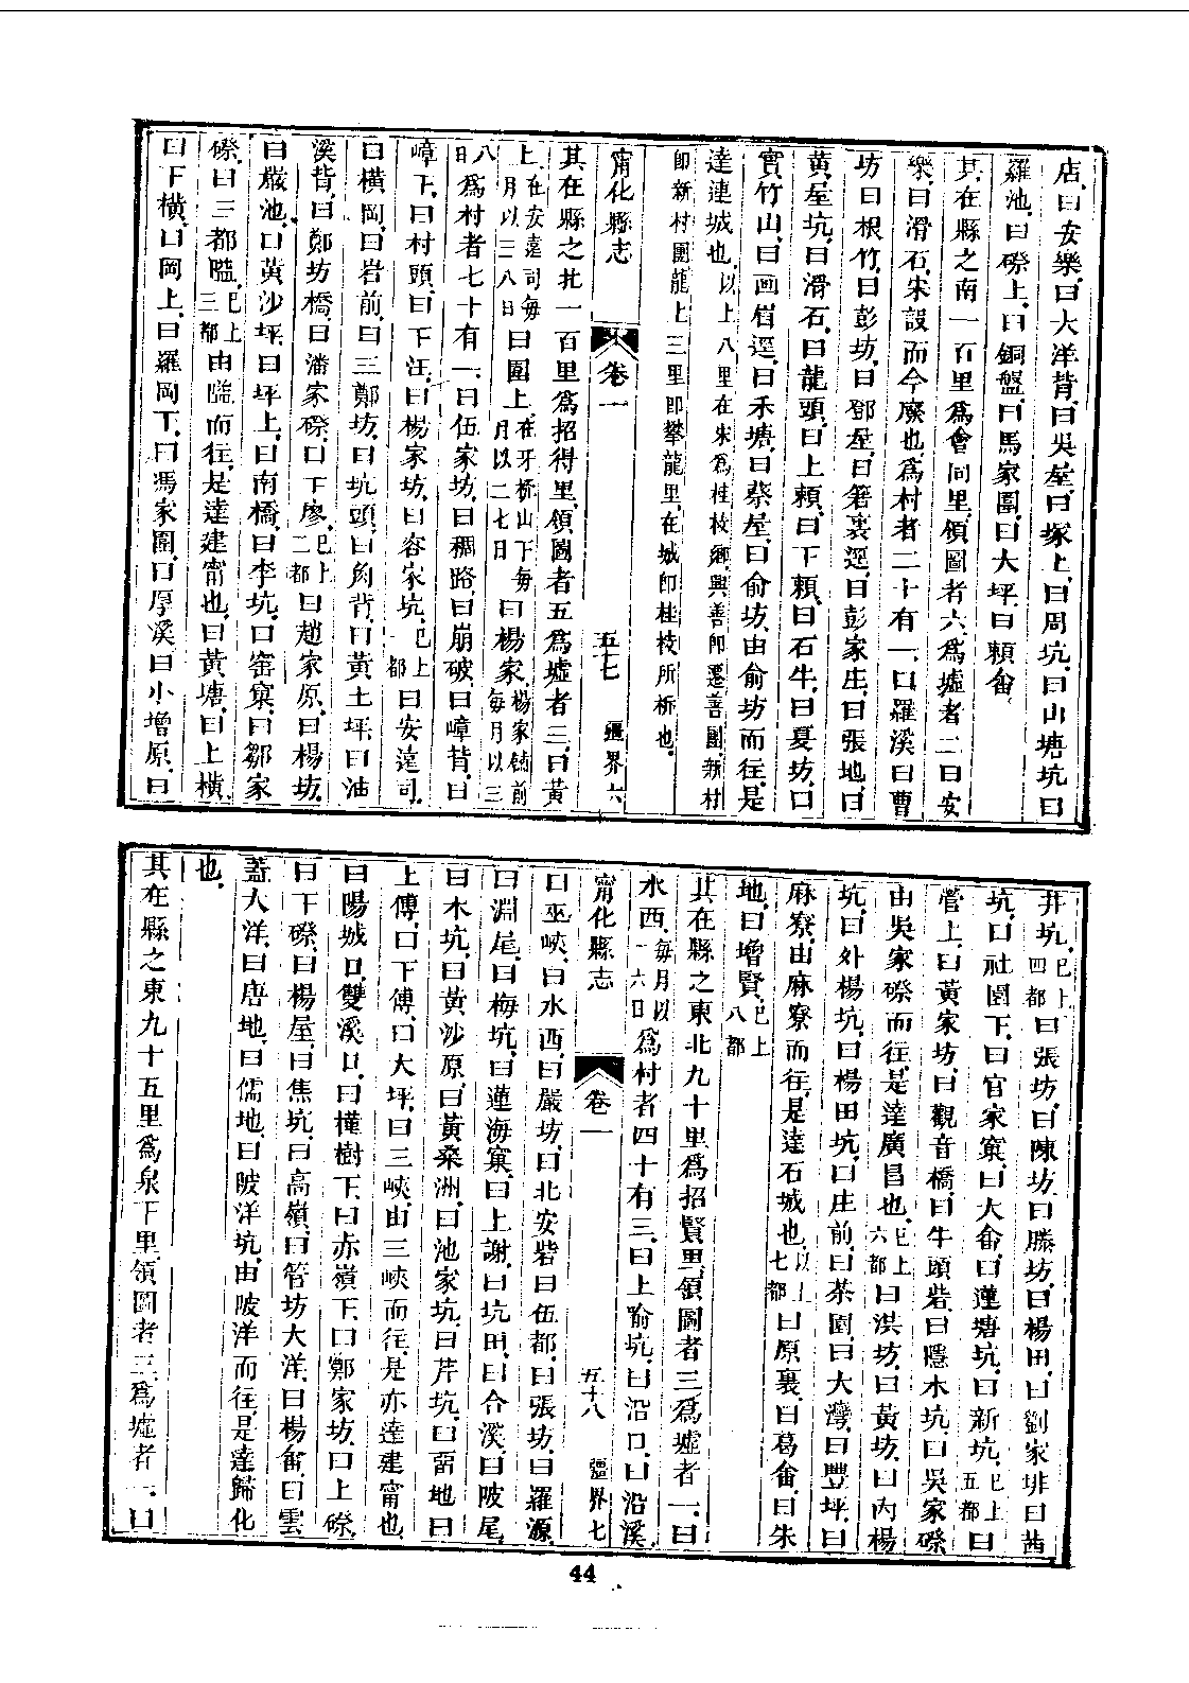 店曰安樂曰大洋背曰吳屋曰塚上曰周坑曰山塘坑曰
羅池曰磜上曰銅盤曰馬家圍曰大坪曰賴畲
其在縣之南一百里為會同里領圖者六為墟者二曰安
樂曰滑石宋設而今廢也為村者二十有一曰羅溪曰曹
坊曰根竹曰彭坊曰鄧屋曰箬裏逕曰彭家庄曰張地曰
黃屋坑曰滑石曰龍頭曰上賴曰下賴曰石牛曰夏坊曰
實竹山曰画眉逕曰禾塘曰蔡屋曰俞坊由俞坊而往是
達連城也以上八里在宋為桂枝鄉興善即遷善團新村
即新村團龍上三里即攀龍里在城即桂枝所析也
甯化縣志 卷一 五十七 疆界六
其在縣之北一百里為招得里領圖者五為墟者三曰黃
上在安遠司每月以三八日曰圍上在牙梳山下每月以二七日曰楊家楊家舖前每月以三
八日為村者七十有一曰伍家坊曰稠路曰崩破曰嶂背曰
嶂下曰村頭曰下汪曰楊家坊曰容家坑已上一都曰安遠司
曰橫岡曰岩前曰三鄭坊曰坑頭曰角背曰黃土坪曰油
溪背曰鄭坊橋曰潘家磜曰下廖已上二都曰趙家原曰楊坊
曰嚴池曰黃沙坪曰坪上曰南橋曰李坑曰窑窠曰鄒家
磜曰三都隘已上三都由隘而往是達建甯也曰黃塘曰上橫
曰下橫曰岡上曰羅岡下曰馮家圍曰厚溪曰小增原曰
井坑已上四都曰張坊曰陳坊曰滕坊曰楊田曰劉家排曰茜
坑曰社圍下曰官家窠曰大畲曰蓮塘坑曰新坑已上五都曰
營上曰黃家坊曰觀音橋曰牛頭砦曰隱木坑曰吳家磜
由吳家磜而往是達廣昌也已上六都曰洪坊曰黃坊曰內楊
坑曰外楊坑曰楊田坑曰庄前曰茶園曰大灣曰豐坪曰
麻寮由麻寮而往是達石城也以上七都曰原裏曰葛畲曰朱
地曰增賢已上八都
其在縣之東北九十里為招賢里領圖者三為墟者一曰
水西每月以一六日為村者四十有三曰上喻坑曰沿口曰沿溪
甯化縣志 卷一 五十八 疆界七
曰巫峽曰水西曰嚴坊曰北安砦曰伍都曰張坊曰羅源
曰淵尾曰梅坑曰蓮海窠曰上謝曰坑田曰合溪曰陂尾
曰木坑曰黃沙原曰黃桑洲曰池家坑曰芹坑曰甯地曰
上傅曰下傅曰大坪曰三峽由三峽而往是亦達建甯也
曰陽城曰雙溪口曰權樹下曰赤嶺下曰鄭家坊曰上磜
曰下磜曰楊屋曰焦坑曰高嶺曰管坊大洋曰楊畲曰雲
蓋大洋曰唐地曰儒地曰陂洋坑由陂洋而往是達歸化
也
其在縣之東九十五里為泉下里領圖者三為墟者一曰
44